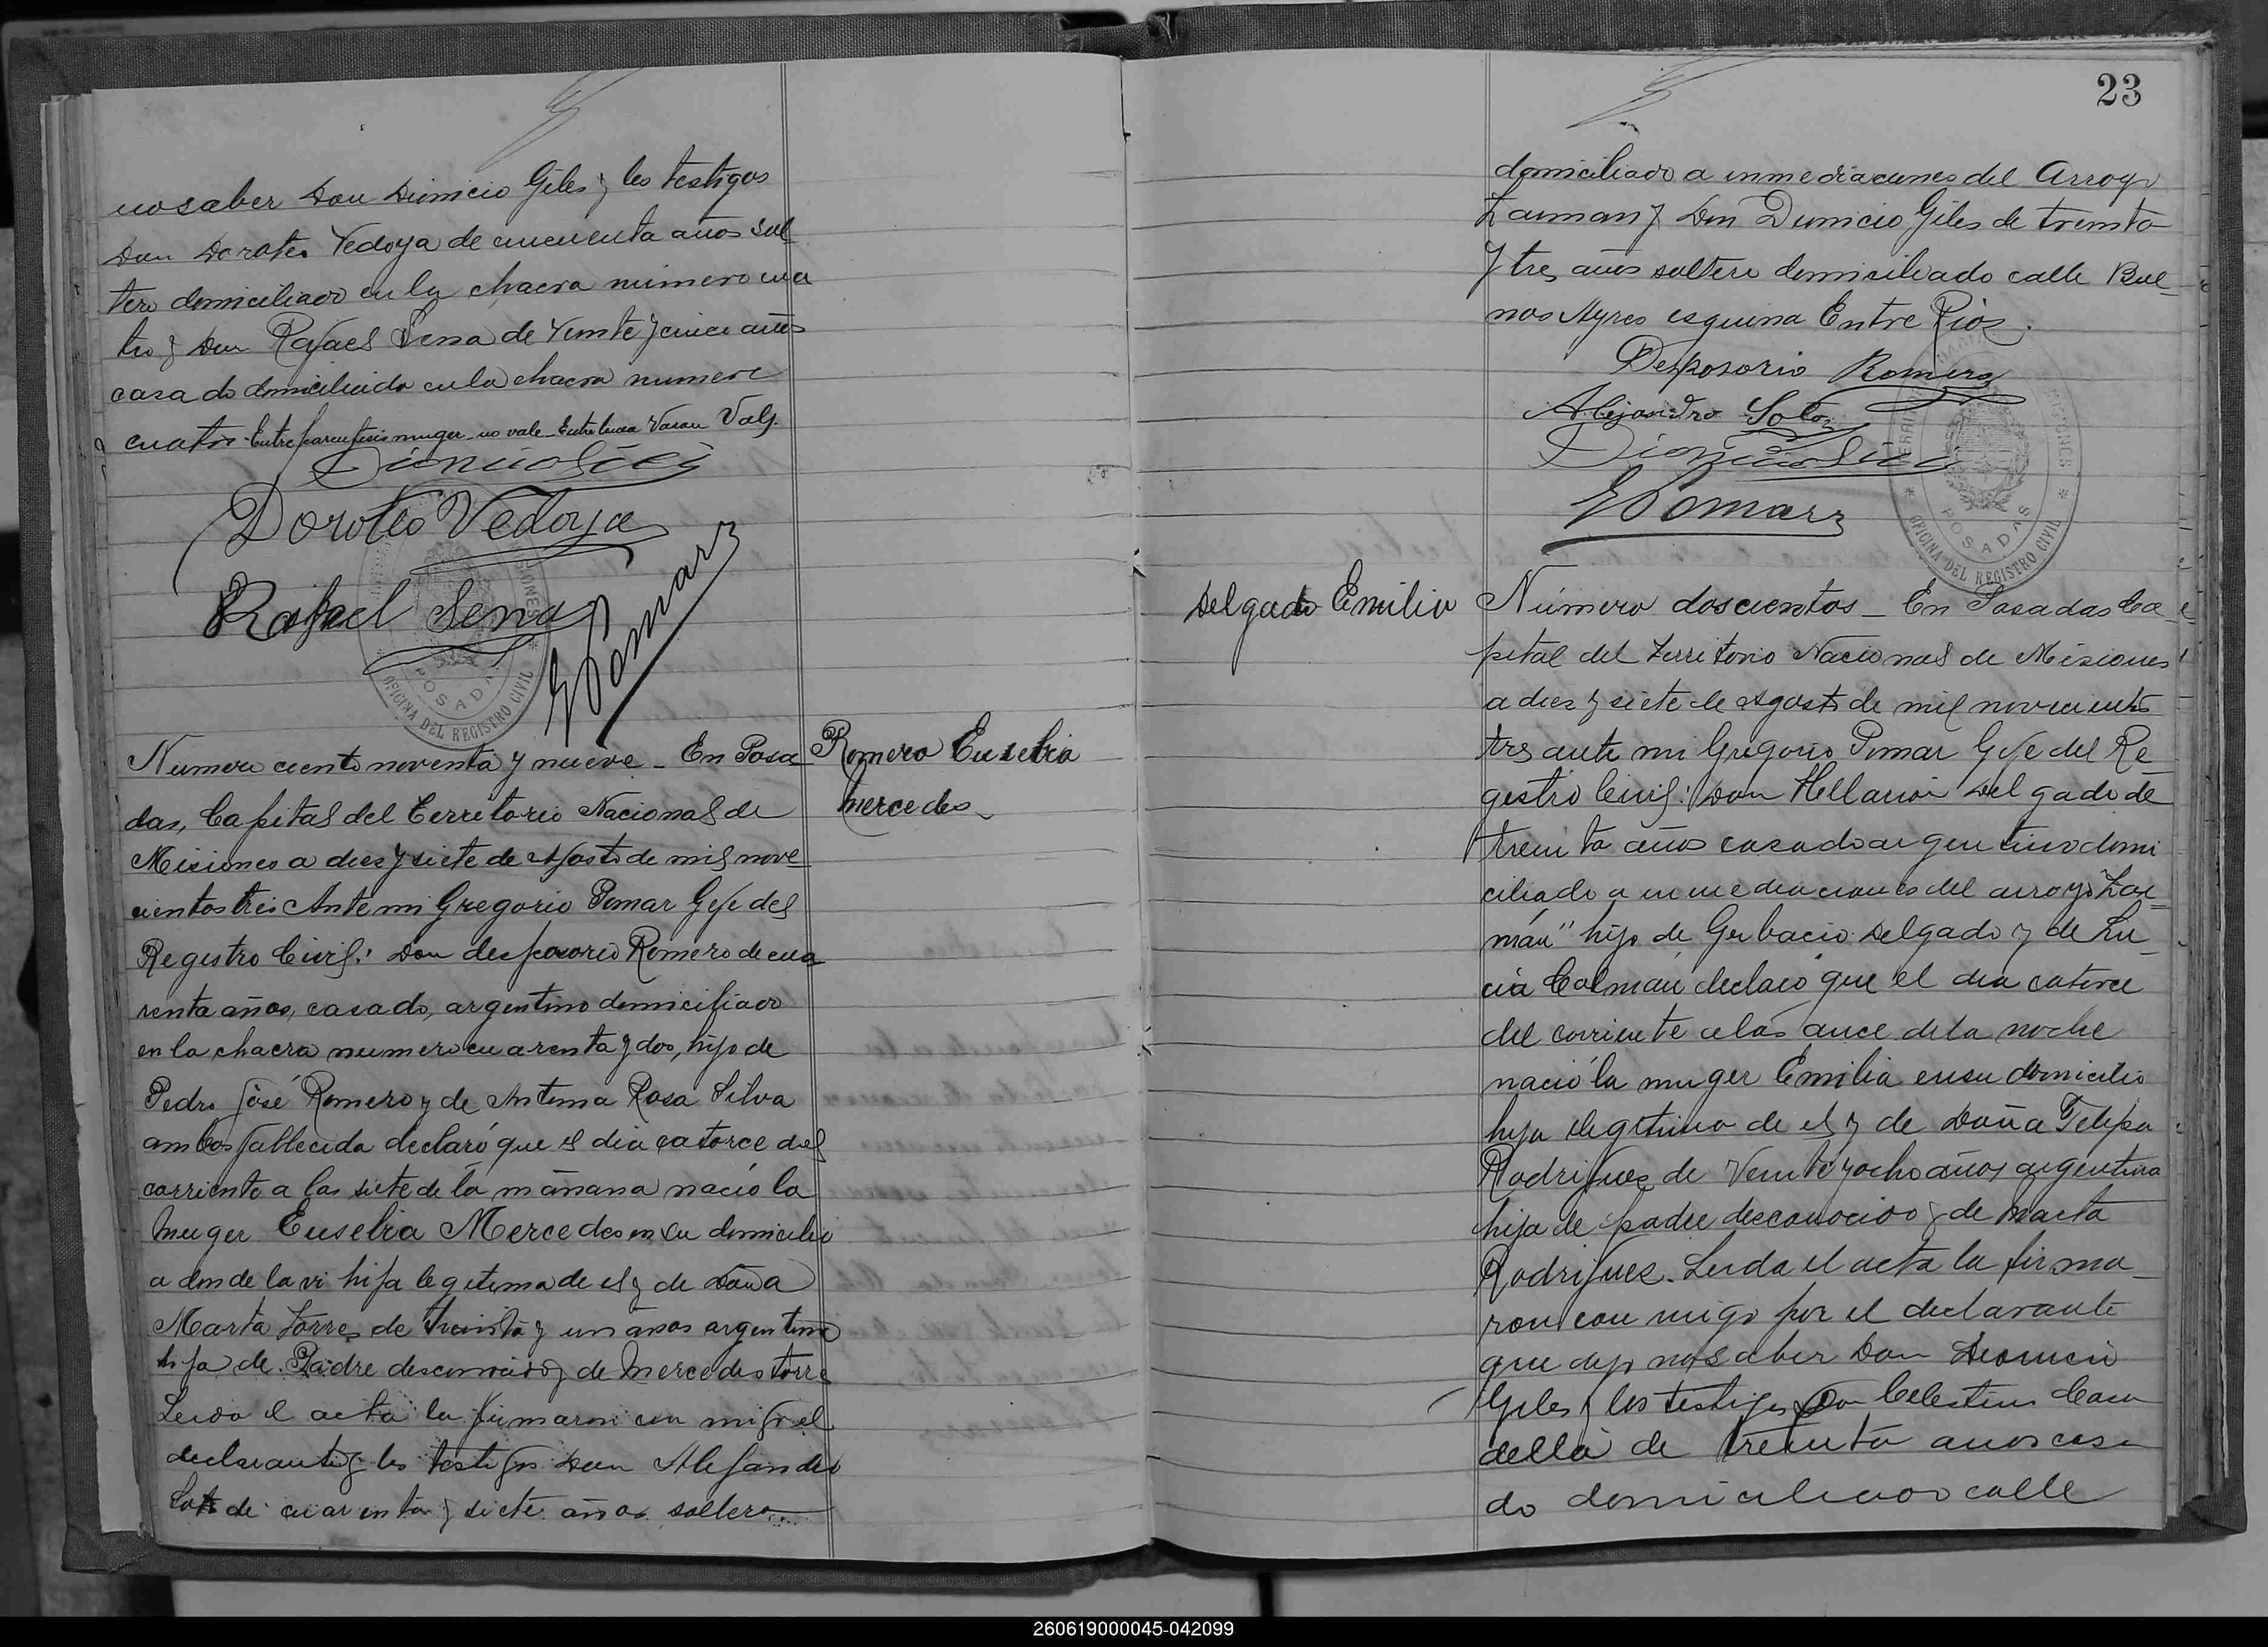 no saber Don Dionicio Giles y los testigos
Don Doroteo Vedoya de cincuenta años sol
tero domiciliado en la chacra número cua
tro y Don Rafael Sena de veinte y cinco años
casado domiciliado en la chacra numero
cuatro - Entre parentesis muger - no vale - Entre linea Varon Vale.
Dionicio Giles
Doroteo Vedoya
Rafael Sena
GPomar
OFICINA DEL REGISTRO CIVIL
POSADAS
Numero ciento noventa y nueve - En Posa
das, Capital del Territorio Nacional de
Misiones a diez y siete de Agosto de mil nove
cientos tres Ante mi Gregorio Pomar Gefe del
Registro Civil: Don desposorio Romero de cua
renta años, casado, argentino domiciliado
en la chacra numero cuarenta y dos, hijo de
Pedro José Romero y de Antonia Rosa Silva
ambos fallecido declaró que el dia catorce del
corriente a las siete de la mañana nació la
muger Eusebia Mercedes en su domicilio
a donde la vi hija legitima de el y de Doña
Marta Torres de treinta y un años argentina
hija de Padre desconocido y de Mercedes Torre
Leida el acta la firmaron con migo el
declarante y los testigos Don Alejandro
Soto de cuarenta y siete años soltero
Romero Eusebia
Mercedes
23
domiciliado a inmediaciones del Arroyo
Zaiman y Don Dionicio Giles de treinta
y tres años soltero domiciliado calle Bue-
nos Ayres esquina Entre Rios.
Desposorio Romero
Alejandro Soto
Dionicio Giles
GPomar
OFICINA DEL REGISTRO CIVIL
POSADAS
Delgado Emilia
Número doscientos - En Posadas Ca-
pital del Territorio Nacional de Misiones
a diez y siete de Agosto de mil novecientos
tres ante mi Gregorio Pomar Gefe del Re-
gistro Civil: Don Hellarión Delgado de
treinta años casado argentino domi
ciliado a inmediaciones del arroyo "Zai=
mán" hijo de Gerbacio Delgado y de Lu-
cia Colman declaró que el dia catorce
del corriente a las once de la noche
nació la muger Emilia en su domicilio
hija legitima de el y de Doña Felipa
Rodrigues de veinte y ocho años argentina
hija de padre desconocido y de Marta
Rodrigues. Leida el acta la firma-
ron con migo por el declarante
que dijo no saber Don Dionicio
Giles y los testigos Don Celestino
della de treinta años casa
do domiciliado calle
260619000045-042099